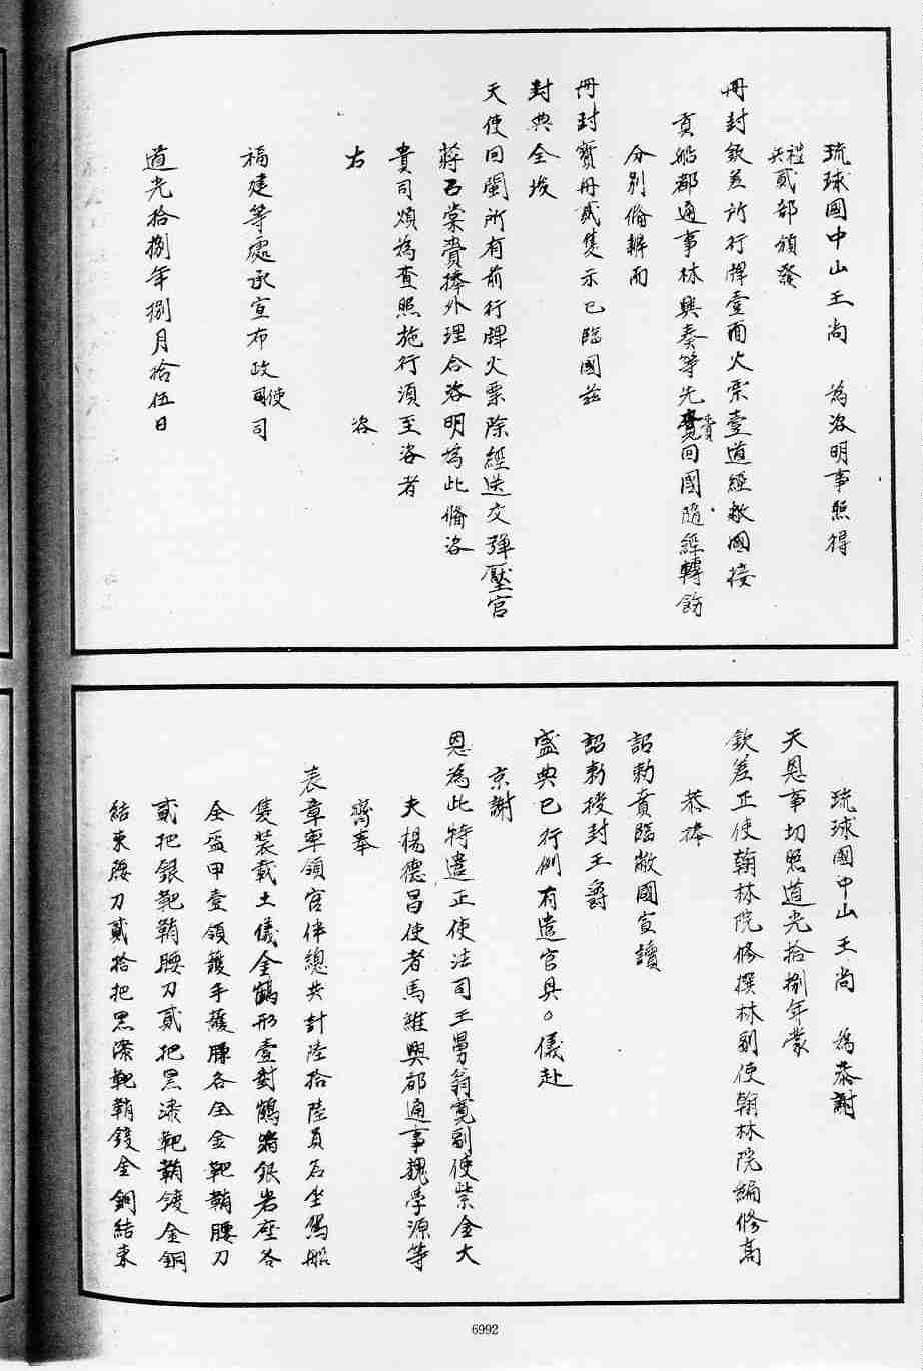 琉球國中山王尚　為咨明事照得
禮兵貳部頒發
冊封欽差所行牌壹面火票壹道經敝國接
貢船都通事林興奏等先賫回國隨經轉飭
分別俻辦而
冊封寶冊貳隻示已臨國茲
封典全竣
天使回閩所有前行牌火票除經送交彈壓官
蔣召棠賫捧外理合咨明為此俻咨
貴司煩為查照施行須至咨者
右　咨
福建等處承宣布政使司
道光拾捌年捌月拾伍日
琉球國中山王尚　為恭謝
天恩事切照道光拾捌年蒙
欽差正使翰林院修撰林副使翰林院編修高
恭捧
詔勅賁臨敝國宣讀
詔勅授封王爵
盛典已行例有遣官具〇儀赴
京謝
恩為此特遣正使法司王舅翁寬副使紫金大
夫楊德昌使者馬維興都通事魏學源等
齎奉
表章率領官伴總共計陸拾陸員名坐駕船
隻裝載土儀金鶴形壹對鶴踏銀岩座各
全盔甲壹領護手護臁各全金靶鞘腰刀
貳把銀靶鞘腰刀貳把黑漆靶鞘鍍金銅
結束腰刀貳拾把黑漆靶鞘鍍金銅結束
6992